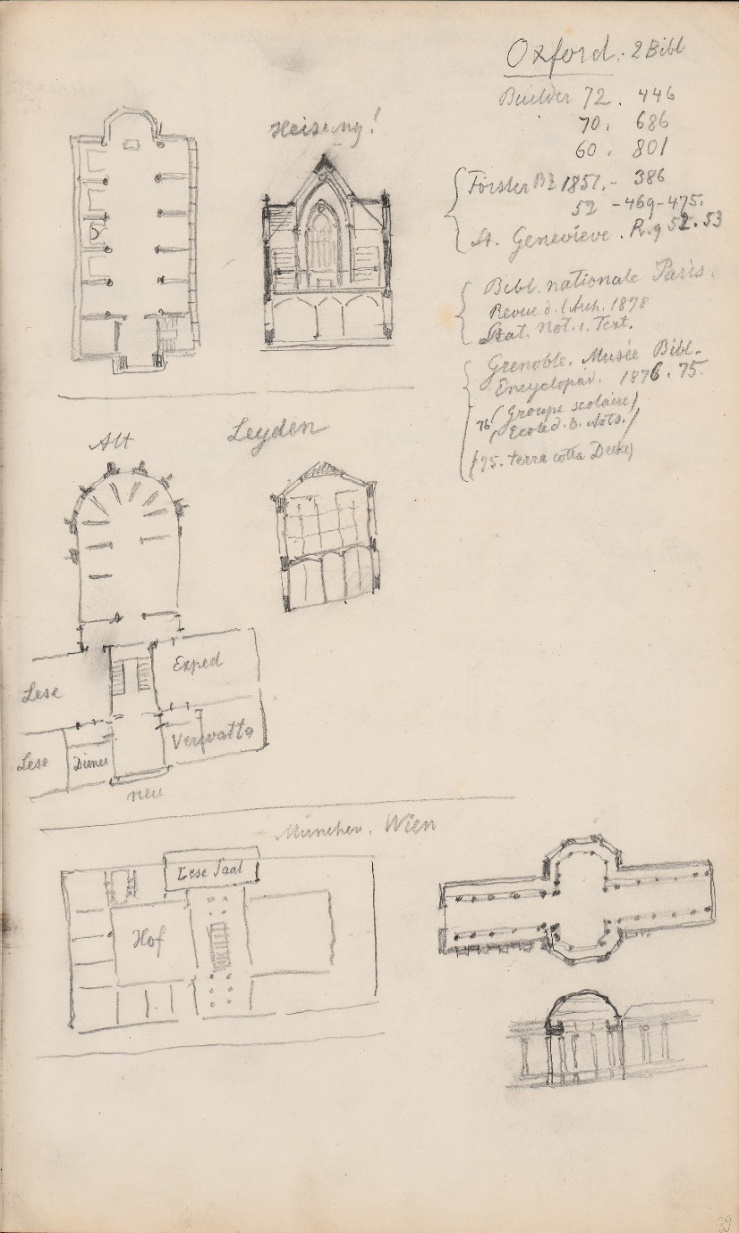 Oxford. 2 Bibl
Builder 72. 446
70. 686
60. 801
Förster Bz 1851.- 386
52 -469-475.
St. Geneviève. R.g 52.53
Bibl. nationale Paris.
Revue d. l'Arch. 1878
Stat. Not. i. Text.
Grenoble. Musée Bibl.
Encyclopäd. 1876. 75.
76 (Groupe scolaire)
(Ecole d. b. Arts.)
(75. terra cotta Decke)
Heizung!
Alt Leyden
Lese Exped
Lese Diener Verwaltg
neu
München. Wien
Lese Saal
Hof
39